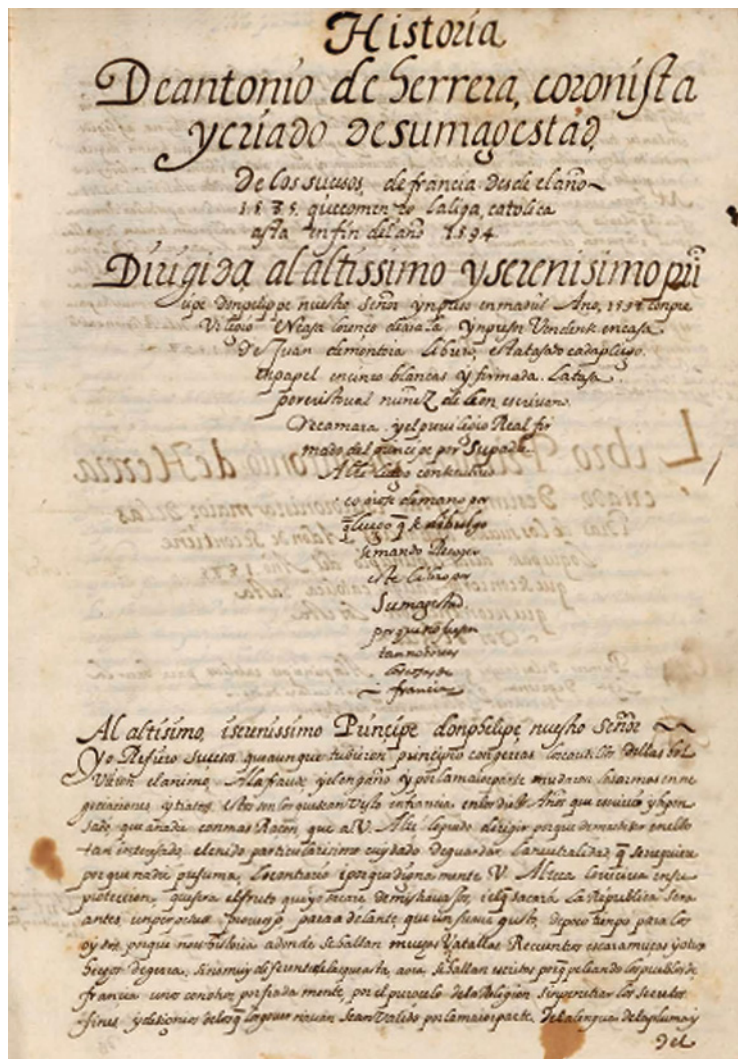 Historia
De antonio de herrera, coronista
y criado de su magestad,
De los sucesos, de francia desde el año
1585. que començo la liga, catolica
asta en fin del año 1594.
Dirigida, al altissimo y serenisimo prin
cipe don pelippe nuestro señor ynpreso en madrid Año, 1598 con pre
Vilegio En casa lorenco de ayala ynpresor Vendese en casa
De Juan de montoia librero, esta tasado cada pliego.
en papel en cinco blancas y firmada. La tasa
por cristoual nuñeZ de leon escrivano
De camara y el previlegio Real fir
mado del principe por su padre
este libro contenido
copiose de mano por
que luego que se
se mando Recoger
este libro por
Su magestad
porque no fuesen
tan notorias
las cosas de
francia
Al altísimo, i sereníssimo Príncipe don phelipe, nuestro Señor
Yo Refiero sucesos que aunque tubieron principio con
el animo, A la fraude y el engaño y por la maior parte mudaron las armas en ne
gociaciones, y tratos. estos son los que se an visto en francia en los diez Años que
sado, que a nadie con mas Raçon, que a V. Alteza e podido dirigir porque de mas de ser en ello
tan interesado, el tenido particularisimo cuydado de guardar la neutralidad, q se requiere
porque nadie presuma, lo contrario i porque dignamente V. Alteça lo reciva en su
proteccion, questa el fruto que yo sacare de mis travajos, i el q sacará la Republica sera
antes, un perpetuo provecho para adelante, que un suave gusto, de poco tiempo para los
oydos, porque no es historia a donde se hallan muchas Vatallas Recuentros escaramuças y otros
hechos de guerra, sino muy diferente de las que asta, aora, se hallan escritas porq peleando los pueblos de
francia unos con otros porfiadamente, por el pretexto de la Religion sin penetrar los secretos
fines y designios de los q los goviernan an Valido por la maior parte, De la lengua de la pluma y
del